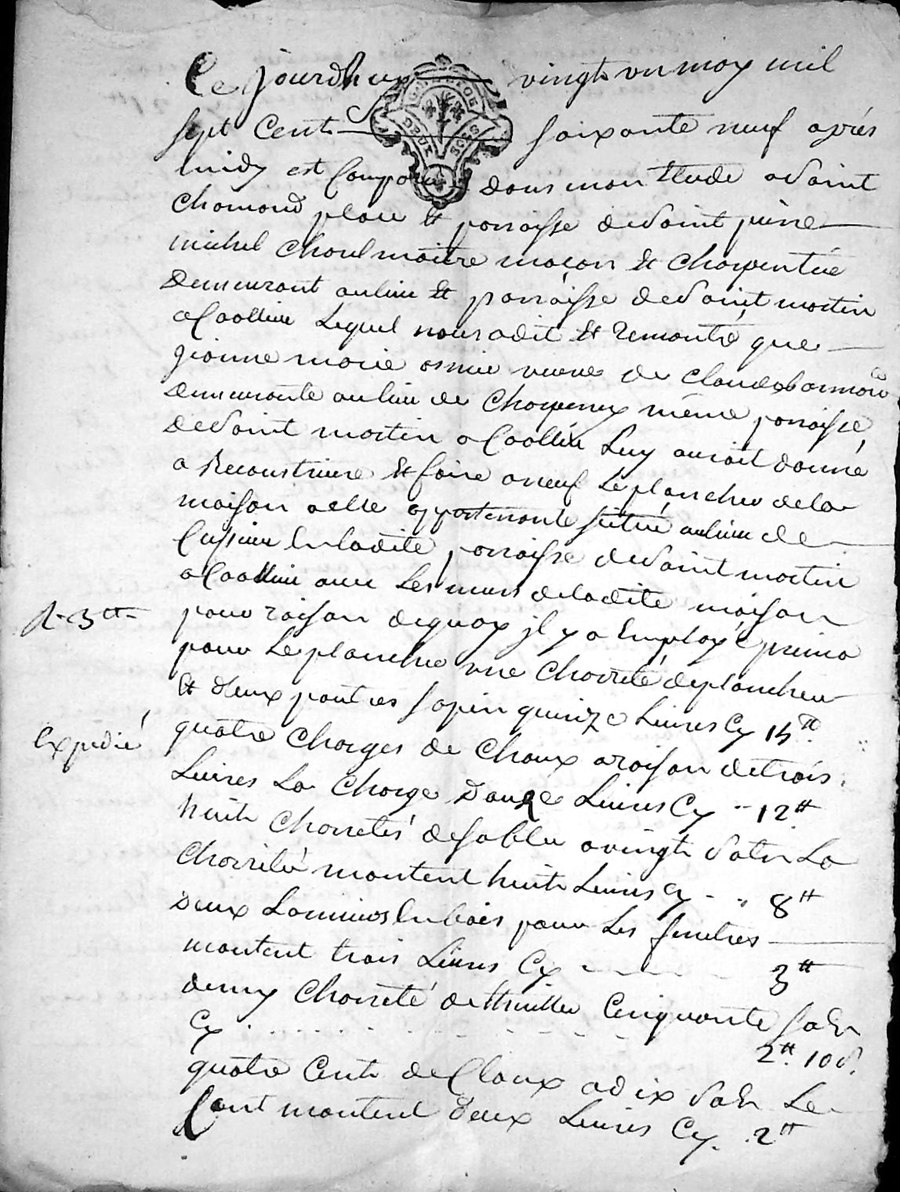 Ce jourdhuy vingt un may mil
sept cent soixante neuf après
midy est comparu dans mon Etude a Saint
chamond place et parroisse de Saint pierre
michel choul maitre macon et charpentié
demeurant au lieu et parroisse de Saint martin
a Coallieu Lequel nous a dit et remontré que
jeanne marie veuve de claude
demeurante au lieu de même parroisse
de Saint martin a Coallieu Luy auroit donné
a reconstruire et faire a neuf Le plancher de la
maison a elle appartenante située au lieu de
en ladite parroisse de Saint martin
a Coallieu avec Les murs de ladite maison
pour raison de quoy jl y a Employé primo
pour Le plancher une charreté de plancher
et deux pautres sapin quinze Livres Cy 15tt
quatre charges de chaux a raison de trois
Livres La charge douze Livres Cy 12tt
huit charretés de sable a vingt sols La
charreté montent huit Livres Cy 8tt
deux en bois pour Les fenetres
montent trois Livres Cy 3tt
demy charreté de thuilles Cinquante sols
Cy 2tt 10s.
quatre Cent de Cloux a dix sols Le
Cent montent deux Livres Cy 2tt
R. 3tt
Expedié
DEUX SOLS